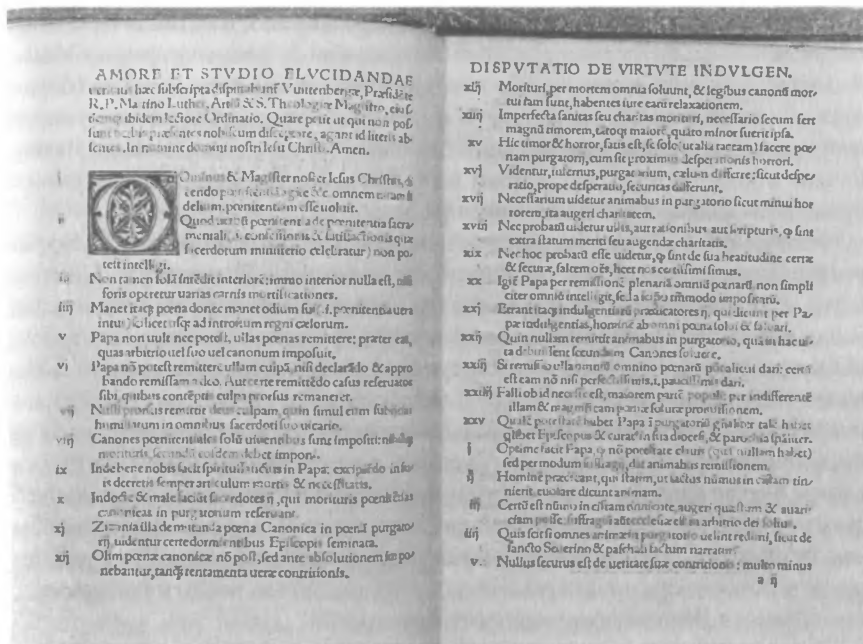 AMORE ET STVDIO ELVCIDANDAE
hæc disputabunt Vuittenbergæ, Præsidẽte
R.P. Martino Luther, Artiũ & S. Theologiæ Magistro, eiusdemq;
ibidem lectore Ordinatio. Quare petit ut qui non pos/
sunt præsentes nobiscum disceptare, agant id literis ab/
sentes. In nomine domini nostri Iesu Christi. Amen.
i Ominus & Magister noster Iesus Christus, di
cendo pœnitentiam agite &c omnem uitam fi
delium, pœnitentiam esse uoluit.
ii Quod uerbũ pœnitentia de pœnitentia sacra
mentali (.i. confessionis & satisfactionis quæ
sacerdotum ministerio celebratur) non po/
test intelligi.
iii Non tamen solã intẽdit interiorẽ: immo interior nulla est, nisi
foris operetur uarias carnis mortificationes.
iiij Manet itaq; pœna donec manet odium sui (.i. pœnitentia uera
intus) scilicet usq; ad introitum regni cælorum.
v Papa non uult nec potest, ullas pœnas remittere: præter eas,
quas arbitrio uel suo uel canonum imposuit.
vi Papa nõ potest remittere ullam culpã, nisi declarãdo & appro
bando remissam a deo. Aut certe remittẽdo casus reseruatos
sibi, quibus contẽptis culpa prorsus remaneret.
vij Nulli prorsus remittit deus culpam, quin simul eum subijciat
humiliatum in omnibus sacerdoti suo uicario.
viij Canones pœnitentiales solũ uiuentibus sunt impositi:
morituris, secundũ eosdem debet imponi.
ix Inde bene nobis facit spiritussanctus in Papa: excipiẽdo in su/
is decretis semper articulum mortis & necessitatis.
x Indocte & male faciũt sacerdotes ij, qui morituris pœnitẽtias
canonicas in purgatorium reseruant.
xj Zizania illa de mutanda pœna Canonica in pœnã purgato/
rij, uidentur certe dormientibus Episcopis seminata.
xij Olim pœnæ canonicæ nõ post, sed ante absolutionem im po/
nebantur, tanq̃ tentamenta ueræ contritionis.
DISPVTATIO DE VIRTVTE INDVLGEN.
xiij Morituri, per mortem omnia soluunt, & legibus canonũ mor/
tui iam sunt, habentes iure earũ relaxationem.
xiiij Imperfecta sanitas seu charitas morituri, necessario secum fert
magnũ timorem, tãtoq; maiorẽ, quãto minor fuerit ipsa.
xv Hic timor & horror, satis est, se solo (ut alia taceam) facere pœ/
nam purgatorij, cum sit proximus desperationis horrori.
xvj Videntur, infernus, purgatorium, cælum differre: sicut despe/
ratio, prope desperatio, securitas differunt.
xvij Necessarium uidetur animabus in purgatorio sicut minui hor
rorem, ita augeri charitatem.
xviij Nec probatũ uidetur ullis, aut rationibus, aut scripturis, q̃ sint
extra statum meriti seu augendæ charitatis.
xix Nec hoc probatũ esse uidetur, q̃ sint de sua beatitudine certæ
& securæ, saltem oẽs, licet nos certissimi simus.
xx Igit̃ Papa per remissionẽ plenariã omniũ pœnarũ non simpli
citer omniũ intelligit, sed a seipso tm̃modo impositarũ.
xxj Errant itaq; indulgentiarũ prædicatores ij, qui dicunt per Pa/
pæ indulgentias, hominẽ ab omni pœna solui & saluari.
xxij Quin nullam remittit animabus in purgatorio, quã in hac ui/
ta debuissent secundum Canones soluere.
xxiij Si remissio ulla omniũ omnino pœnarũ põt alicui dari: certũ
est eam nõ nisi perfectissimis, i. paucissimis dari.
xxiiij Falli ob id necesse est, maiorem partẽ populi: per indifferentẽ
illam & magnificam pœnæ solutæ promissionem.
xxv Qualẽ potestatẽ habet Papa ĩ purgatoriũ gñaliter talẽ habet
q̃libet Episcopus & curat9 in sua diocesi, & parochia sp̃aliter.
j Optime facit Papa, q̃ nõ potestate clauis (quã nullam habet)
sed per modum suffragij, dat animabus remissionem.
ij Hominẽ prædicant, qui statim, ut iactus nũmus in cistam tin/
nierit, euolare dicunt animam.
iij Certũ est nũmo in cistam tinniente, augeri quæstum & auari/
ciam posse: suffragiũ aũt ecclesiæ est in arbitrio dei solius.
iiij Quis scit si omnes animæ in purgatorio uelint redimi, sicut de
sancto Seuerino & paschali factum narratur.
v. Nullus securus est de ueritate suæ contritionis: multo minus
a ij